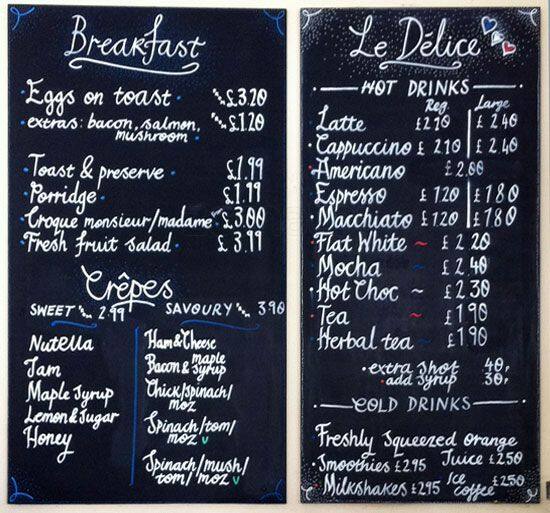 Breakfast
Eggs on toast £3.20
extras: bacon, salmon, mushroom £1.20
Toast & preserve £1.99
Porridge £1.99
Croque monsieur/madame £3.00
Fresh fruit salad £3.99
Crêpes
SWEET 2.99 SAVOURY 3.90
Nutella
Jam
Maple Syrup
Lemon & Sugar
Honey
Ham & Cheese
Bacon & maple syrup
Chick/spinach/
moz
Spinach/tom/
moz v
Spinach/mush/
tom/moz v
Le Délice
HOT DRINKS
Reg. Large
Latte £2.10 £2.40
Cappuccino £2.10 £2.40
Americano £2.00
Espresso £1.20 £1.80
Macchiato £1.20 £1.80
Flat White ~ £2.20
Mocha ~ £2.40
Hot Choc ~ £2.30
Tea ~ £1.90
Herbal tea ~ £1.90
extra shot 40p
add syrup 30p
COLD DRINKS
Freshly Squeezed Orange
Juice £2.50
Smoothies £2.95
Milkshakes £2.95 Ice coffee £2.50